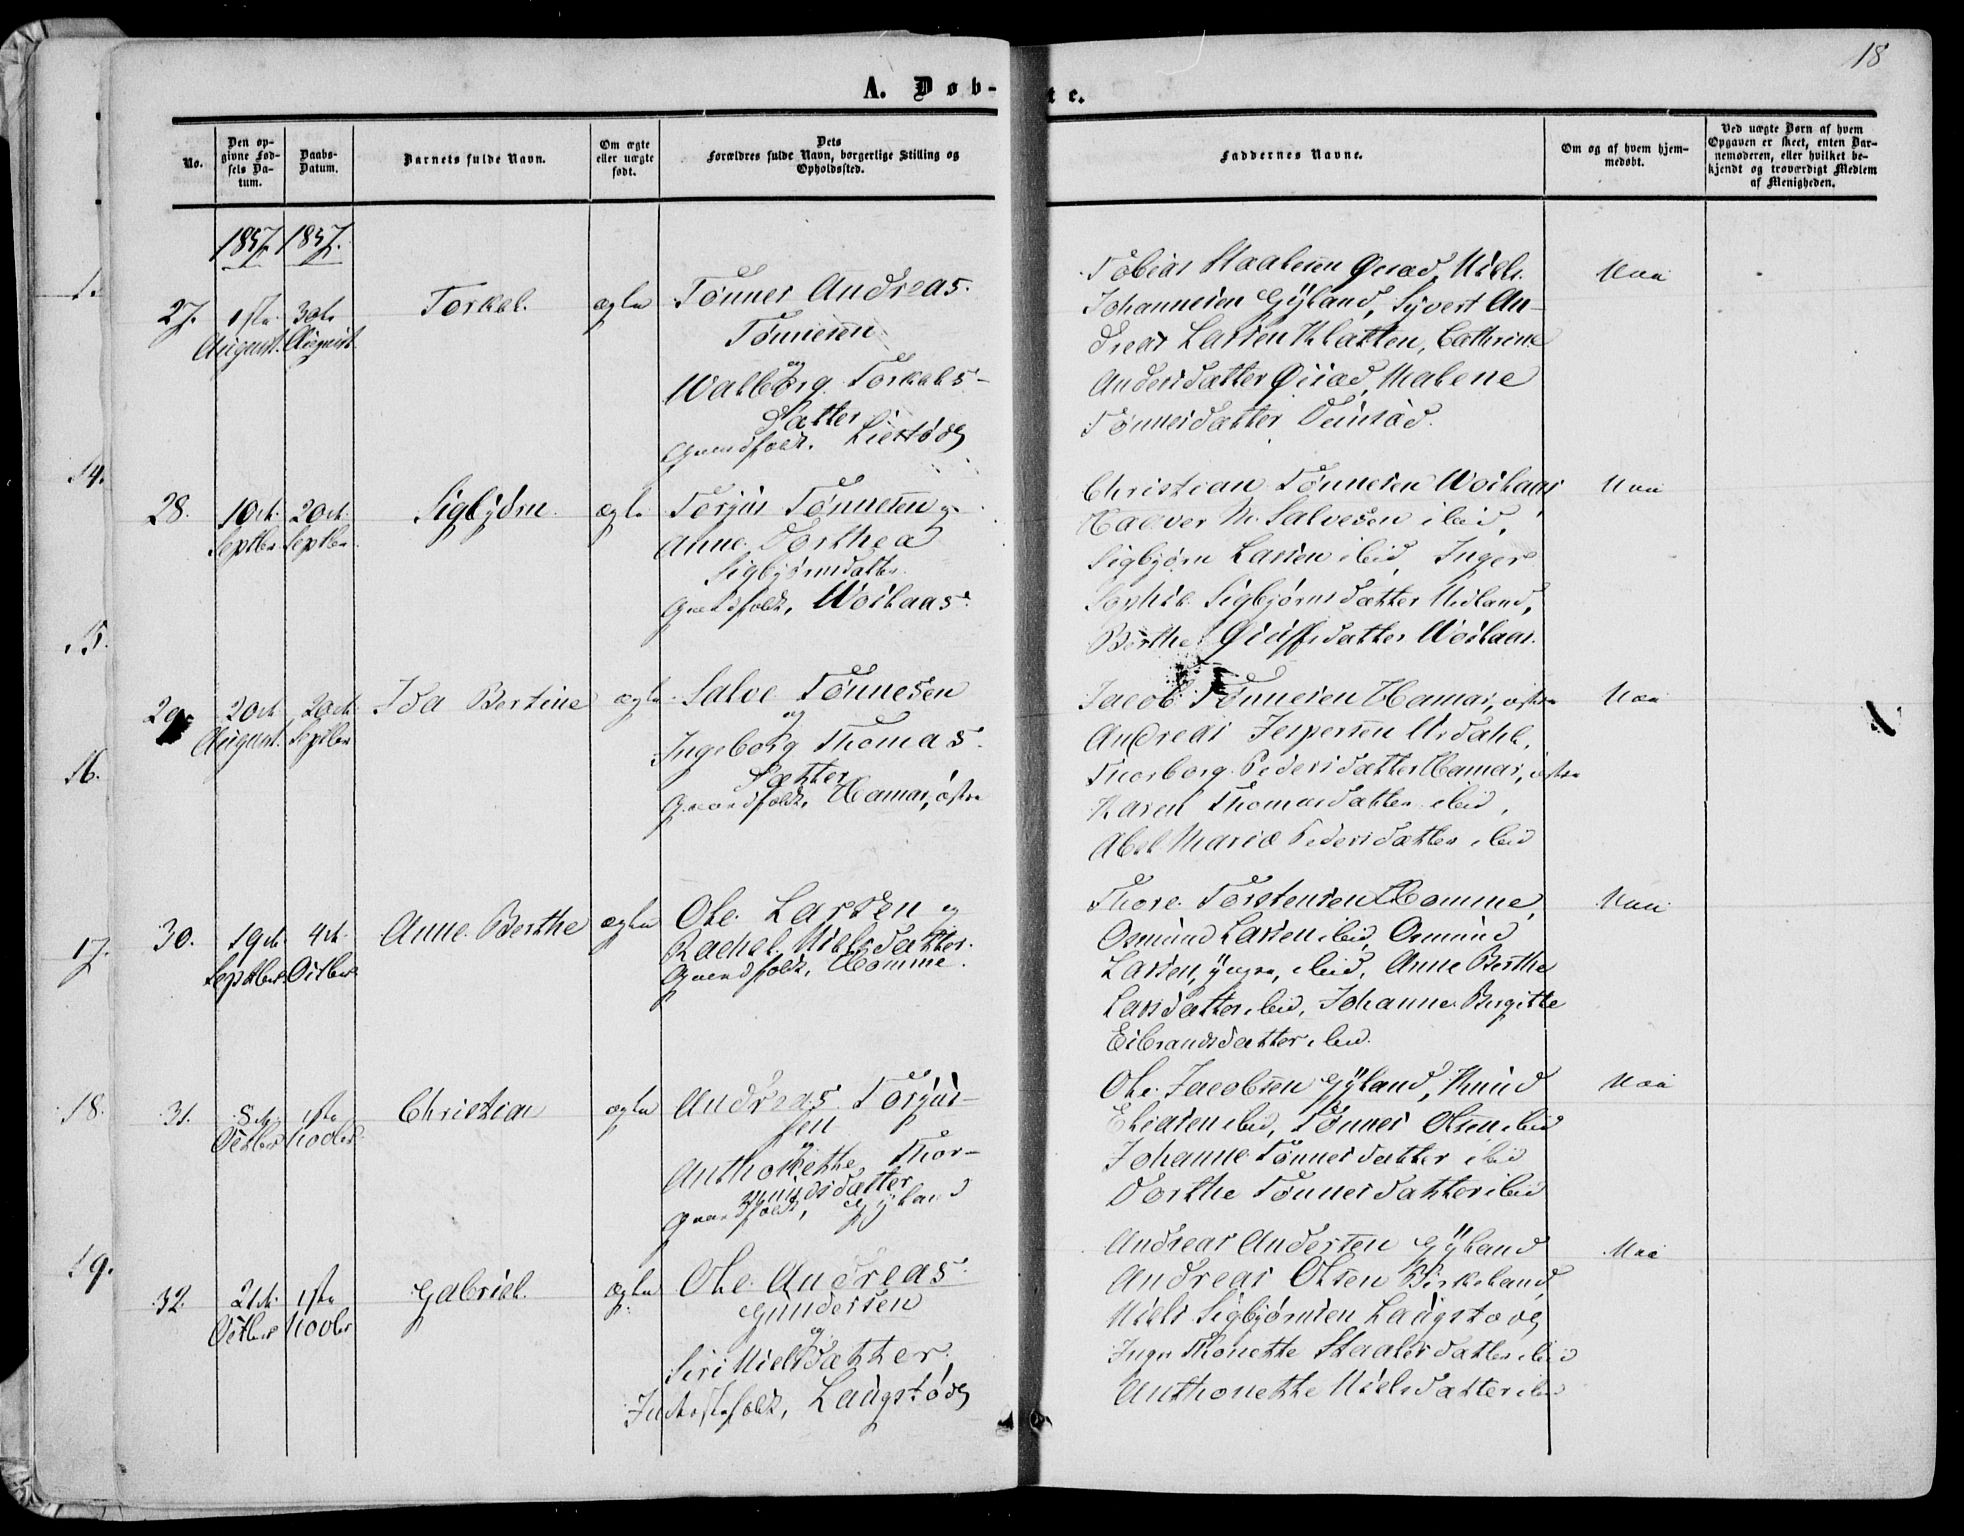 18
A. Døb-
te.
No.
Den op-
givne Fød-
sels Da-
tum.
Daabs-
Datum.
Barnets fulde Navn.
Om ægte
eller uægte
født.
Dets
Forældres fulde Navn, borgerlige Stilling og
Opholdssted.
Faddernes Navne.
Om og af hvem hjem-
medøbt.
Ved uægte Børn af hvem
Opgaven er skeet, enten Bar-
nemoderen, eller hvilket be-
kjendt og troværdigt Medlem
af Menigheden.
1857. 1857.
27.
1ste 30te
August. August.
Torkel.
ægte
Tønnes Andreas
Tønnesen
og
Walborg Torkels-
Datter
Gaardfolk, Liestøog
Tobias Staalesen Øisæd, Niels
Johannesen Gÿland, Sÿvert An-
dreas Larsen Klatten, Cathrine
Andersdatter Øisæd, Malene
Tønnesdatter
Naa
28.
10de 20de
Septber Septber
Sigbjørn
ægte
Torjus Tønnesen og
Anne Dorthea
Sigbjørnsdatter
Gaardfolk, Woilaas
Christian Tønnesen Woilaas
M. Salvesen ibid,
Sigbjørn Larsen ibid, Inger
Sophie Sigbjørnsdatter Midland,
Berthe Woilaas.
Naa
29.
20de 20de
August. Septber
Ida Bertine
ægte
Salve Tønnesen
og
Ingeborg Thomas
Datter
Gaardfolk, Hamar, østre
Jacob Tønnesen Hamar, østre
Andreas Jespersen Urdahl,
Thorborg Pedersdatter Hamar, østre
Karen Thomasdatter ibid,
Abel Marie Pedersdatter ibid
Naa
30.
19de 4de
Septber. Octber
Anne Berthe
ægte
Ole Larsen og
Rachel Nielsdatter.
Gaardfolk, Homme.
Thore Torstensen Homme,
Osmund Larsen ibid, Osmund
Larsen, yngre, ibid, Anne Berthe
Larsdatter ibid, Johanne Birgitte
Eibrandsdatter ibid.
Naa
31.
8de 1ste
Octber Novbr.
Christian
ægte
Andreas Torjus-
sen
og
Anthonette Thor-
mundsdatter
Gaardfolk, Gÿland
Ole Jacobsen Gÿland, Knud
Eliasen ibid, Tønnes Olsen ibid
Johanne Tønnesdatter ibid
Dorthe Tønnesdatter ibid
Naa
32.
21de 1ste
Octber Novbr
Gabriel.
ægte
Ole Andreas
Gundersen
og
Siri Nielsdatter,
Inderstefolk, Laugstøog
Andreas Andersen Gÿland
Andreas Olsen Birkeland,
Niels Sigbjørnsen Laugstøog
Inger Thonette Staalesdatter ibid
Anthonette Nielsdatter ibid
Naa
14.
15.
16.
17.
18.
19.